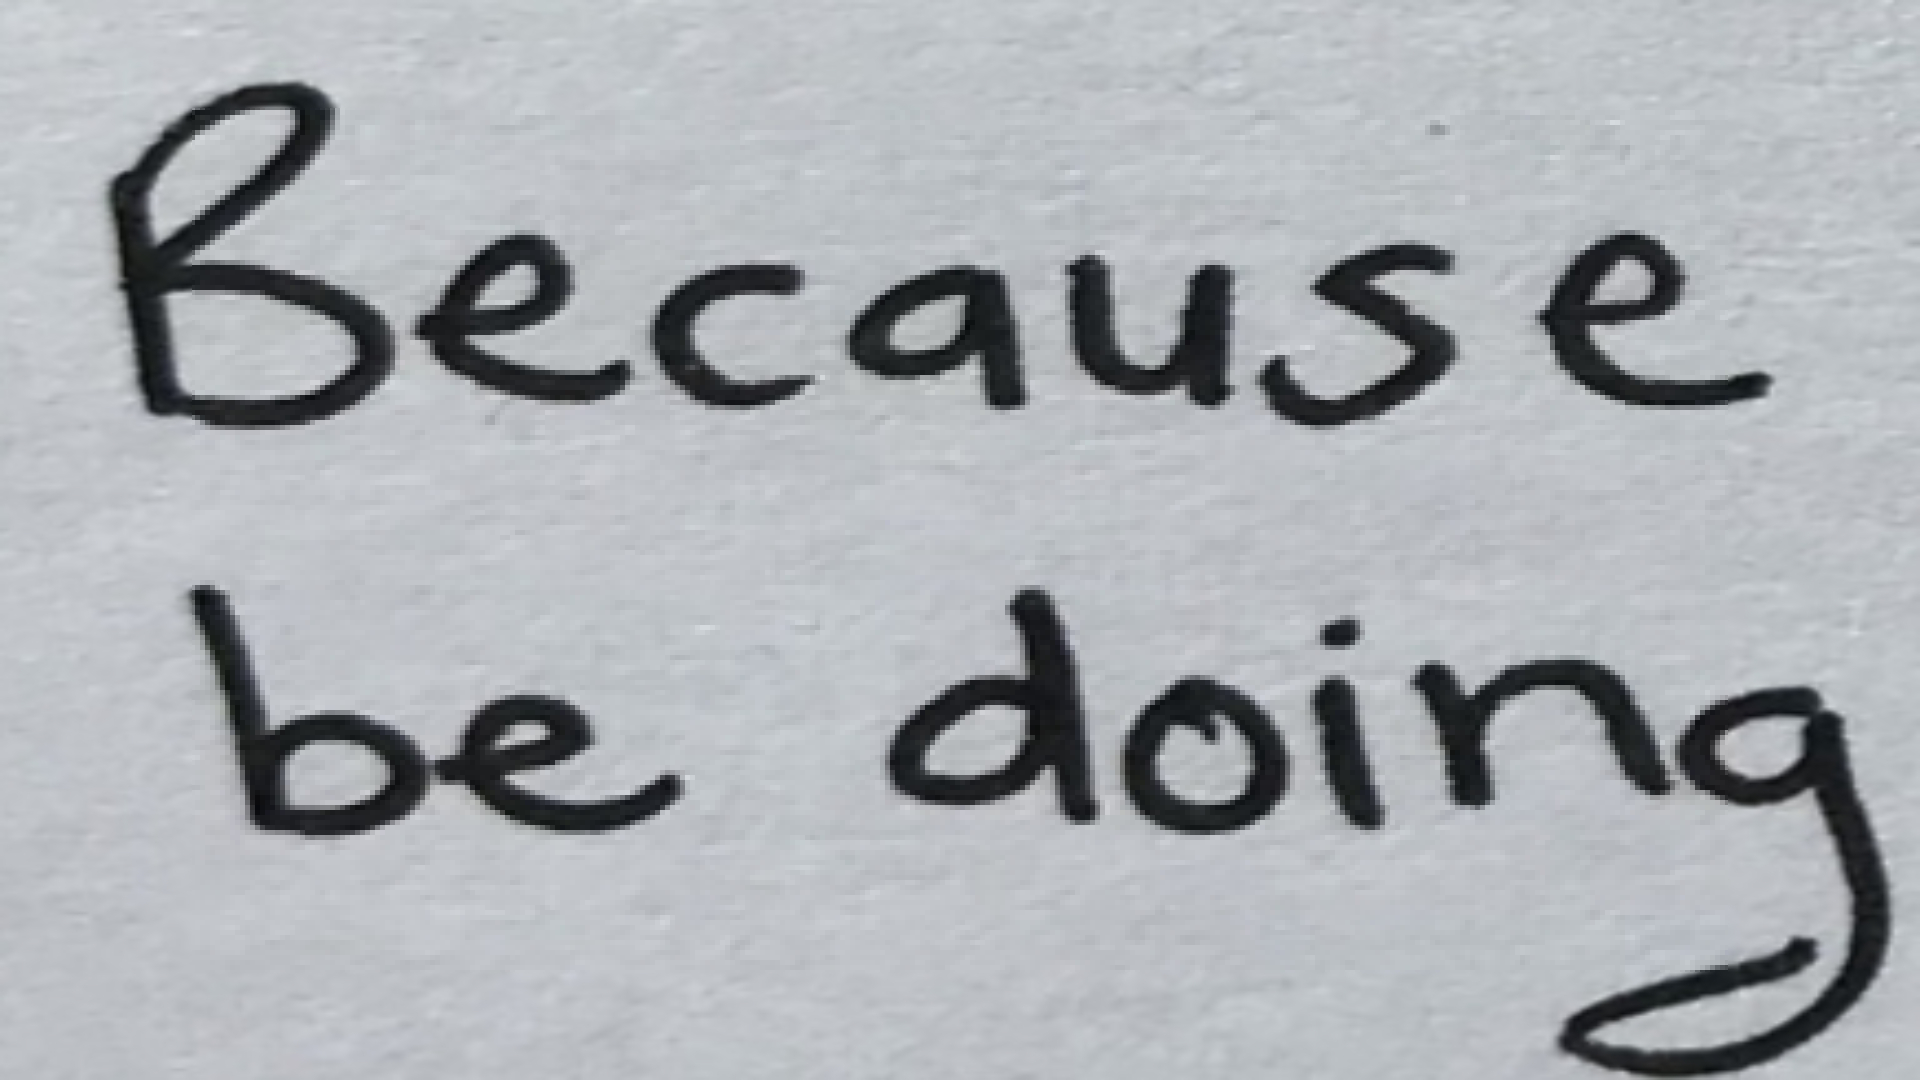 Because
be doing